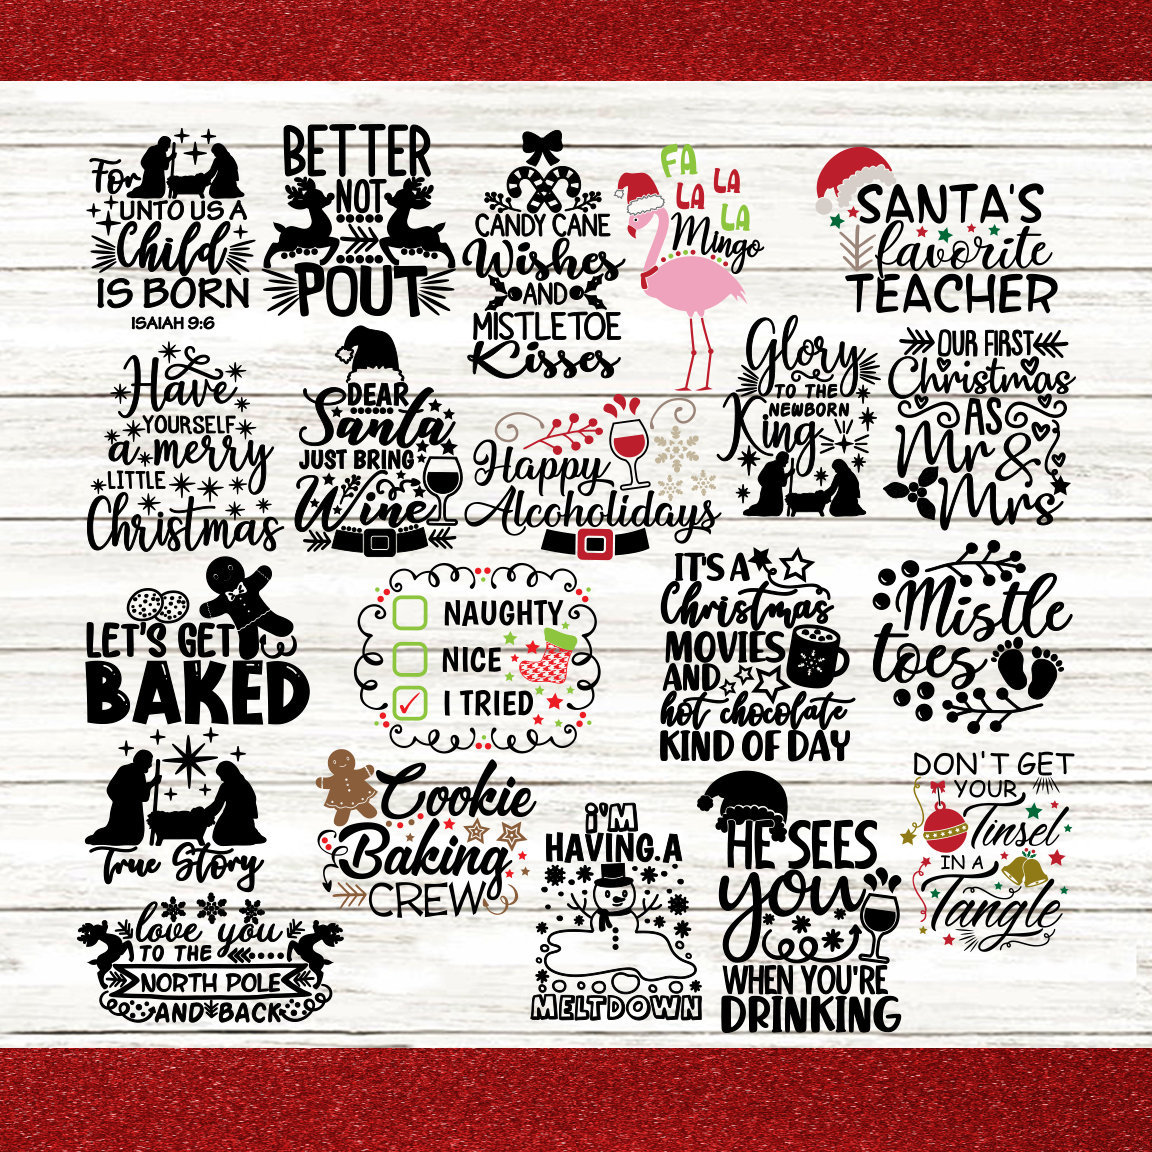 For
UNTO US A
Child
IS BORN
ISAIAH 9:6
BETTER
NOT
POUT
CANDY CANE
Wishes
AND
MISTLETOE
Kisses
FA
LA LA
LA
Mingo
SANTA'S
favorite
TEACHER
Have
YOURSELF
a merry
LITTLE
Christmas
DEAR
Santa
JUST BRING
Wine
Happy
Alcoholidays
Glory
TO THE
NEWBORN
King
OUR FIRST
Christmas
AS
Mr &
Mrs
LET'S GET
BAKED
NAUGHTY
NICE
I TRIED
IT'S A
Christmas
MOVIES
AND
hot chocolate
KIND OF DAY
Mistle
toes
True Story
Cookie
Baking
CREW
I'M
HAVING A
MELTDOWN
HE SEES
you
WHEN YOU'RE
DRINKING
DON'T GET
YOUR
Tinsel
IN A
Tangle
love you
TO THE
NORTH POLE
AND BACK